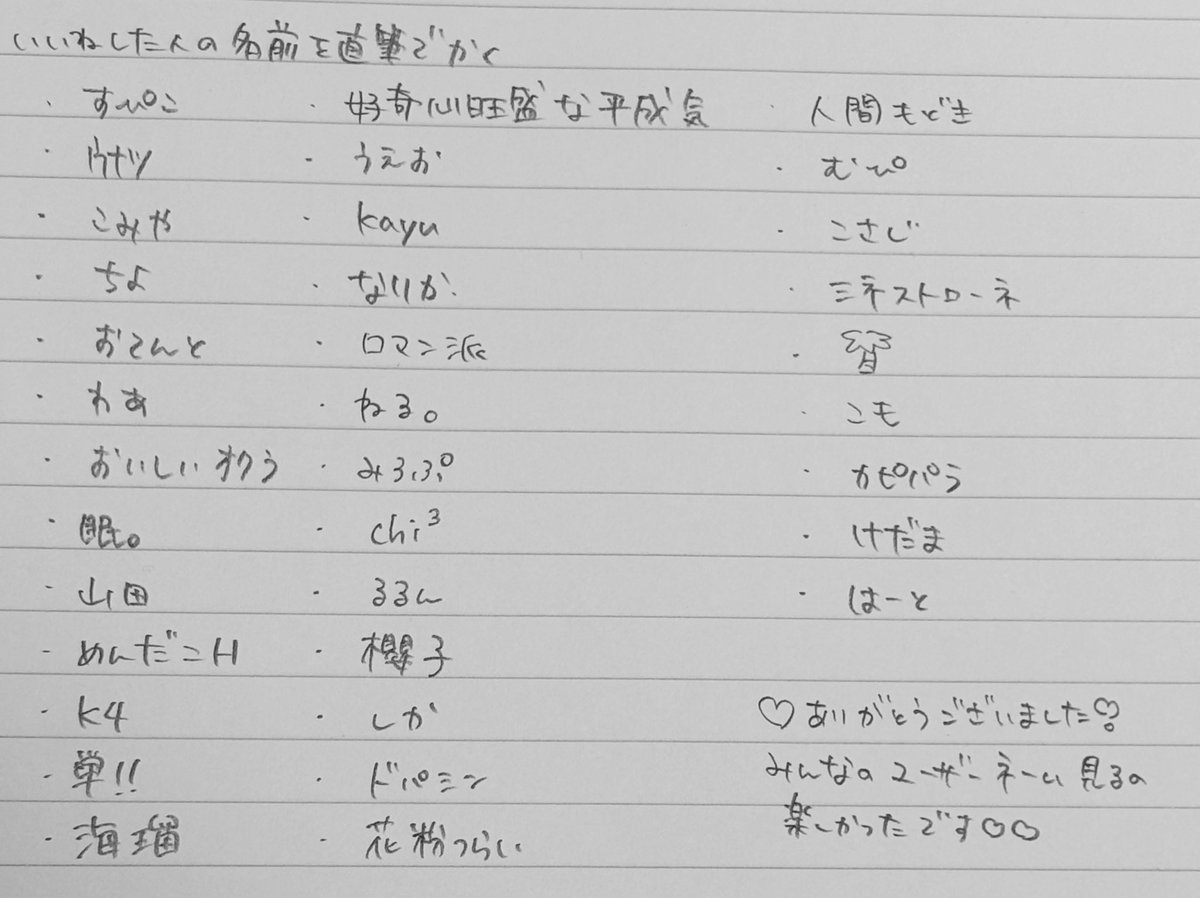 いいねした人の名前を直筆でかく
・すぴこ
・ウナツ
・こみや
・ちよ
・おてんと
・わあ
・おいしいオクラ
・眠。
・山田
・めんだこH
・K4
・単!!
・海瑠
・好奇心旺盛な平成気
・うえお
・kayu
・なりか
・ロマン派
・ねる。
・みろふぷ
・chi³
・るるん
・櫻子
・しか
・ドパミン
・花粉つらい
・人間もどき
・むぴ
・こさじ
・ミネストローネ
・こモ
・カピパラ
・けだま
・はーと
♡ありがとうございました♡
みんなのユーザーネーム見るの
楽しかったです♡♡